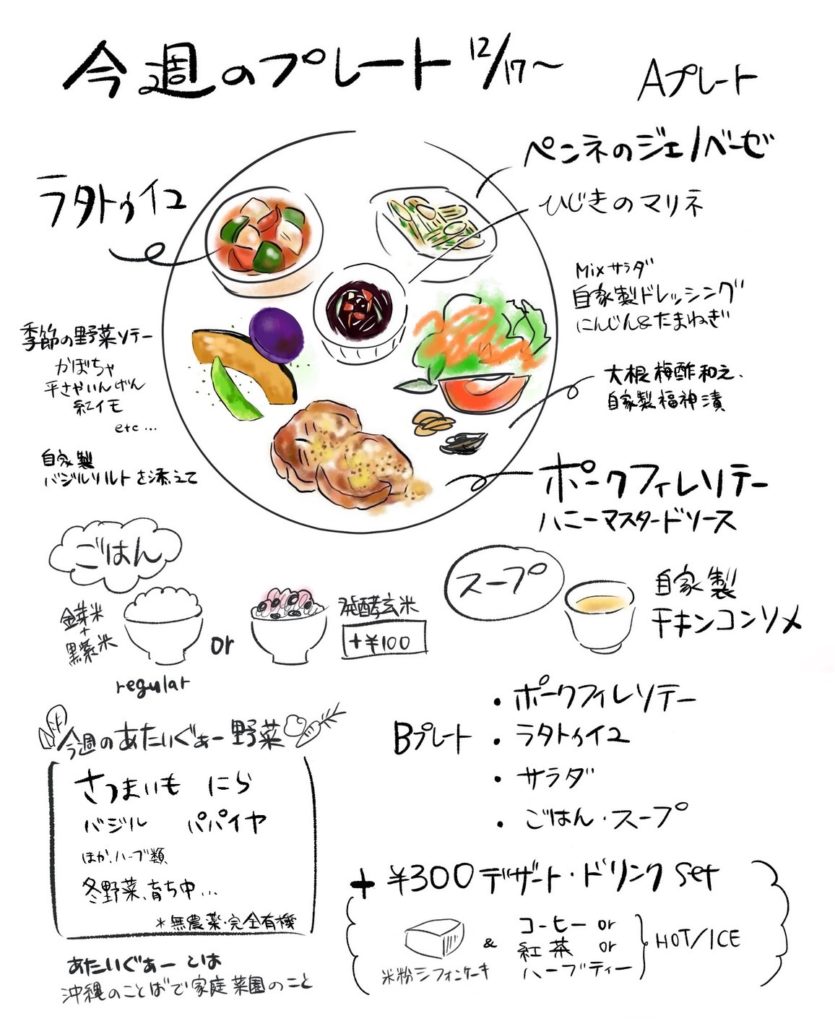 今週のプレート 12/17〜
Aプレート
ペンネのジェノベーゼ
ひじきのマリネ
ラタトゥイユ
Mixサラダ
自家製ドレッシング
にんじん&たまねぎ
季節の野菜ソテー
かぼちゃ
平さやいんげん
紅イモ
etc...
大根梅酢和え、
自家製福神漬
自家製
バジルソルトを添えて
ポークフィレソテー
ハニーマスタードソース
ごはん
金芽米
+
黒紫米
regular
or
発酵玄米
+¥100
スープ
自家製
チキンコンソメ
今週のあたいぐぁー野菜
さつまいも にら
バジル パパイヤ
ほか、ハーブ類
冬野菜、育ち中...
*無農薬・完全有機
あたいぐぁーとは
沖縄のことばで家庭菜園のこと
Bプレート
・ポークフィレソテー
・ラタトゥイユ
・サラダ
・ごはん・スープ
+ ¥300 デザート・ドリンク set
米粉シフォンケーキ
&
コーヒー or
紅茶 or
ハーブティー
HOT/ICE